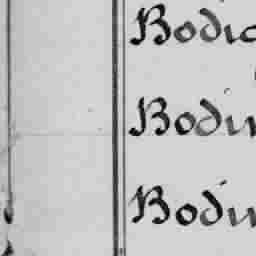 Bodic
Bodin
Bodin